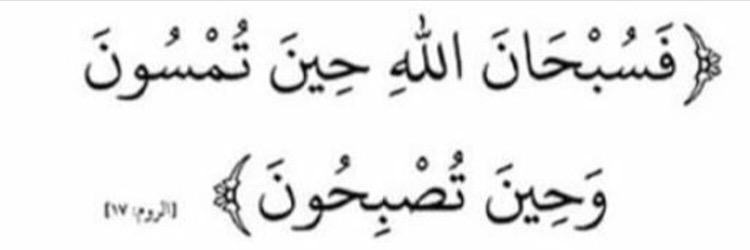 ﴿فَسُبْحَانَ اللّٰهِ حِينَ تُمْسُونَ
وَحِينَ تُصْبِحُونَ﴾ [الروم: ١٧]